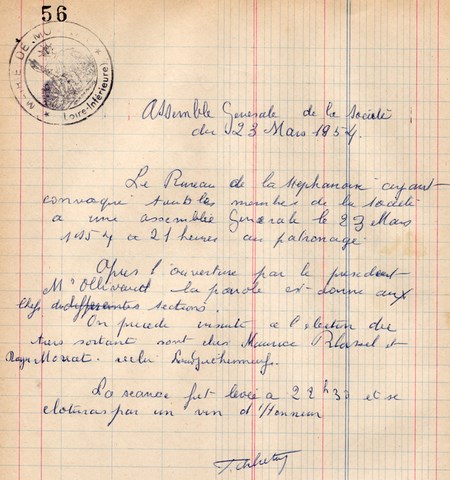 56
MAIRIE DE MO
Loire-Inférieure
Assemblé Generale de la Société
du 23 Mars 1954.
Le Bureau de la Stephanoise ayant
convoqué tous les membres de la société
a une assemblée Générale le 23 Mars
1954 a 21 heures au patronage
Apres l'ouverture par le president
Mr Ollivaud la parole est donne aux
chefs de differentes sections.
On procede ensuite a l'election du
tiers sortant sont elus Maurice et
Roger Morat.
La seance fut levée a 22h33 et se
cloturas par un vin d'Honneur